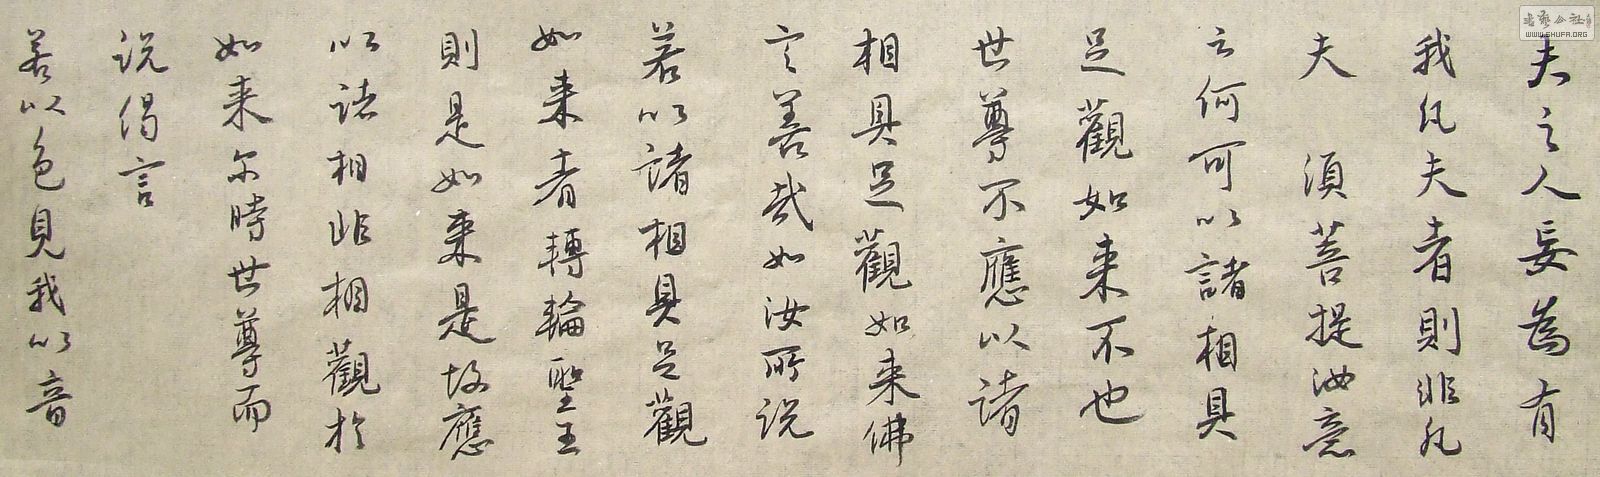 夫之人妄為有
我凡夫者則非凡
夫 須菩提汝意
云何可以諸相具
足觀如来不也
世尊不應以諸
相具足觀如来佛
言善哉如汝所说
若以諸相具足觀
如来者轉輪聖王
則是如来是故應
以诸相非相觀於
如来尔時世尊而
说偈言
若以色見我以音
书艺公社
WWW.SHUFA.ORG